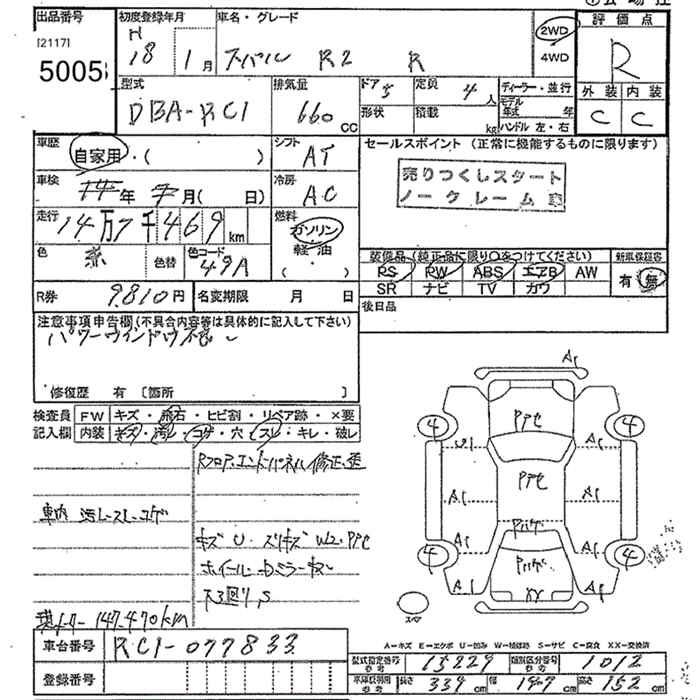 出品番号 初度登録年月 車名・グレード 評価点
[2117] H
5005 18 1月 スバル R2 R 2WD 4WD R
型式 排気量 ドア 5 定員 4人 ディーラー・並行 外装 内装
DBA-RC1 660cc 形状 積載 kg モデル年式 年 C C
ハンドル 左・右
車歴 シフト セールスポイント (正常に機能するものに限ります)
自家用・( ) AT
売りつくしスタート
ノークレーム車
車検 年 月( 日) 冷房 AC
走行 14万7千469km 燃料 ガソリン 軽油 ( ・ )
装備品(純正品に限り○をつけてください) 新車保証書
色 赤 色替 色コード 49A
PS PW ABS エアB AW 有 無
SR ナビ TV カワ
R券 9810円 名変期限 月 日 後日品
注意事項申告欄(不具合内容等は具体的に記入して下さい)
パワーウインドウ不良
修復歴 有 〔箇所 〕
検査員 FW キズ・飛石・ヒビ割・リペア跡・×要
記入欄 内装 キズ・汚レ・コゲ・穴・スレ・キレ・破レ
Rフロア、エンドパネル修正、歪
車内 汚レースレーコゲ
キズ U・スリキズ W2・Pアセ
ホイール・
下廻り、S
147470km
車台番号 RC1-077833
登録番号
A1
4 Pアセ 4
U1 A1
A1 Pアセ A1
A1 A1
4 4
A1 XX A1
スペア
A-キズ E-エクボ U-凹み W-補修跡 S-サビ C-腐食 XX-交換済
型式指定番号 参考 15229 類別区分番号 参考 1012
車庫証明用 参考 長さ 339cm 幅 147cm 高さ 152cm